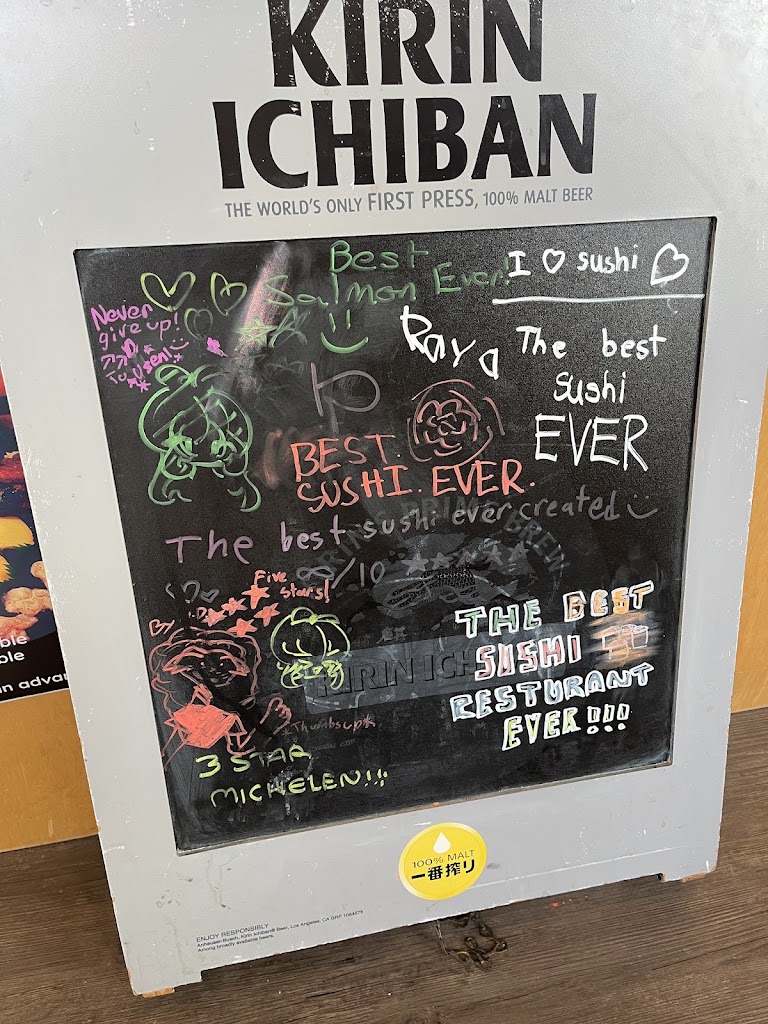 KIRIN
ICHIBAN
THE WORLD'S ONLY FIRST PRESS, 100% MALT BEER
Best
Salmon Ever!
I ♡ sushi
Never
give up!
Raya
The best
sushi
EVER
BEST.
SUSHI. EVER.
The best sushi ever created
∞/10
Five
stars!
By
THE BEST
SUSHI
RESTURANT
EVER!!!
KIRIN ICH
*Thumbsup*
3 STAR
MICHELEN!!!
100% MALT
一番搾り
ENJOY RESPONSIBLY
Anheuser-Busch, Kirin Ichiban® Beer, Los Angeles, CA
ble
ble
in advan